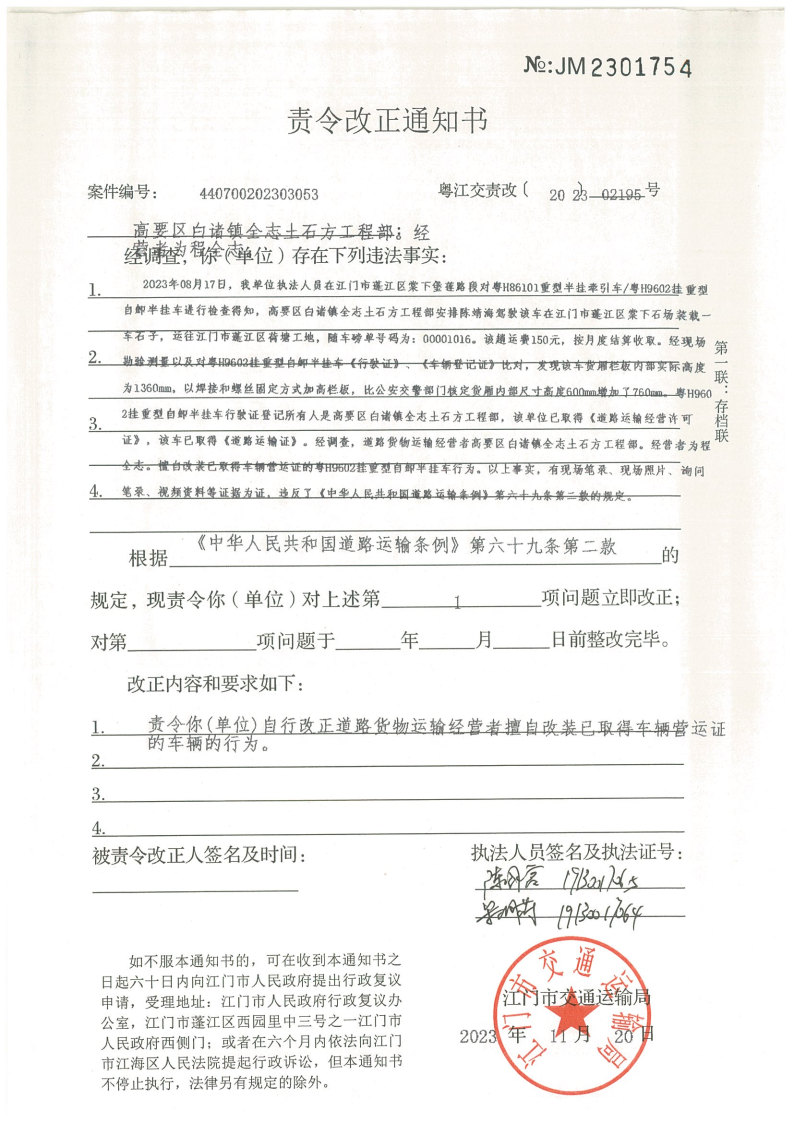 №:JM2301754
责令改正通知书
案件编号： 440700202303053 粤江交责改〔 2023 〕 02195 号
高要区白诸镇全志土石方工程部；经
营者为程全志
经调查，你（单位）存在下列违法事实：
1. 2023年08月17日，我单位执法人员在江门市蓬江区棠下堡莲路段对粤H86101重型半挂牵引车/粤H9602挂重型
自卸半挂车进行检查得知，高要区白诸镇全志土石方工程部安排陈靖海驾驶该车在江门市蓬江区棠下石场装载一
车石子，运往江门市蓬江区荷塘工地，随车磅单号码为：00001016。该趟运费150元，按月度结算收取。经现场
2. 勘验测量以及对粤H9602挂重型自卸半挂车《行驶证》、《车辆登记证》比对，发现该车货厢栏板内部实际高度
为1360mm，以焊接和螺丝固定方式加高栏板，比公安交警部门核定货厢内部尺寸高度600mm增加了760mm。粤H960
3. 2挂重型自卸半挂车行驶证登记所有人是高要区白诸镇全志土石方工程部，该单位已取得《道路运输经营许可
证》，该车已取得《道路运输证》。经调查，道路货物运输经营者高要区白诸镇全志土石方工程部。经营者为程
全志。擅自改装已取得车辆营运证的粤H9602挂重型自卸半挂车行为。以上事实，有现场笔录、现场照片、询问
4. 笔录、视频资料等证据为证，违反了《中华人民共和国道路运输条例》第六十九条第二款的规定。
第一联：存档联
根据 《中华人民共和国道路运输条例》第六十九条第二款 的
规定，现责令你（单位）对上述第 1 项问题立即改正；
对第 项问题于 年 月 日前整改完毕。
改正内容和要求如下：
1. 责令你(单位)自行改正道路货物运输经营者擅自改装已取得车辆营运证
的车辆的行为。
2.
3.
4.
被责令改正人签名及时间：
执法人员签名及执法证号：
19130017065
19130017064
如不服本通知书的，可在收到本通知书之
日起六十日内向江门市人民政府提出行政复议
申请，受理地址：江门市人民政府行政复议办
公室，江门市蓬江区西园里中三号之一江门市
人民政府西侧门；或者在六个月内依法向江门
市江海区人民法院提起行政诉讼，但本通知书
不停止执行，法律另有规定的除外。
江门市交通运输局
江门市交通运输局
2023 年 11 月 20 日